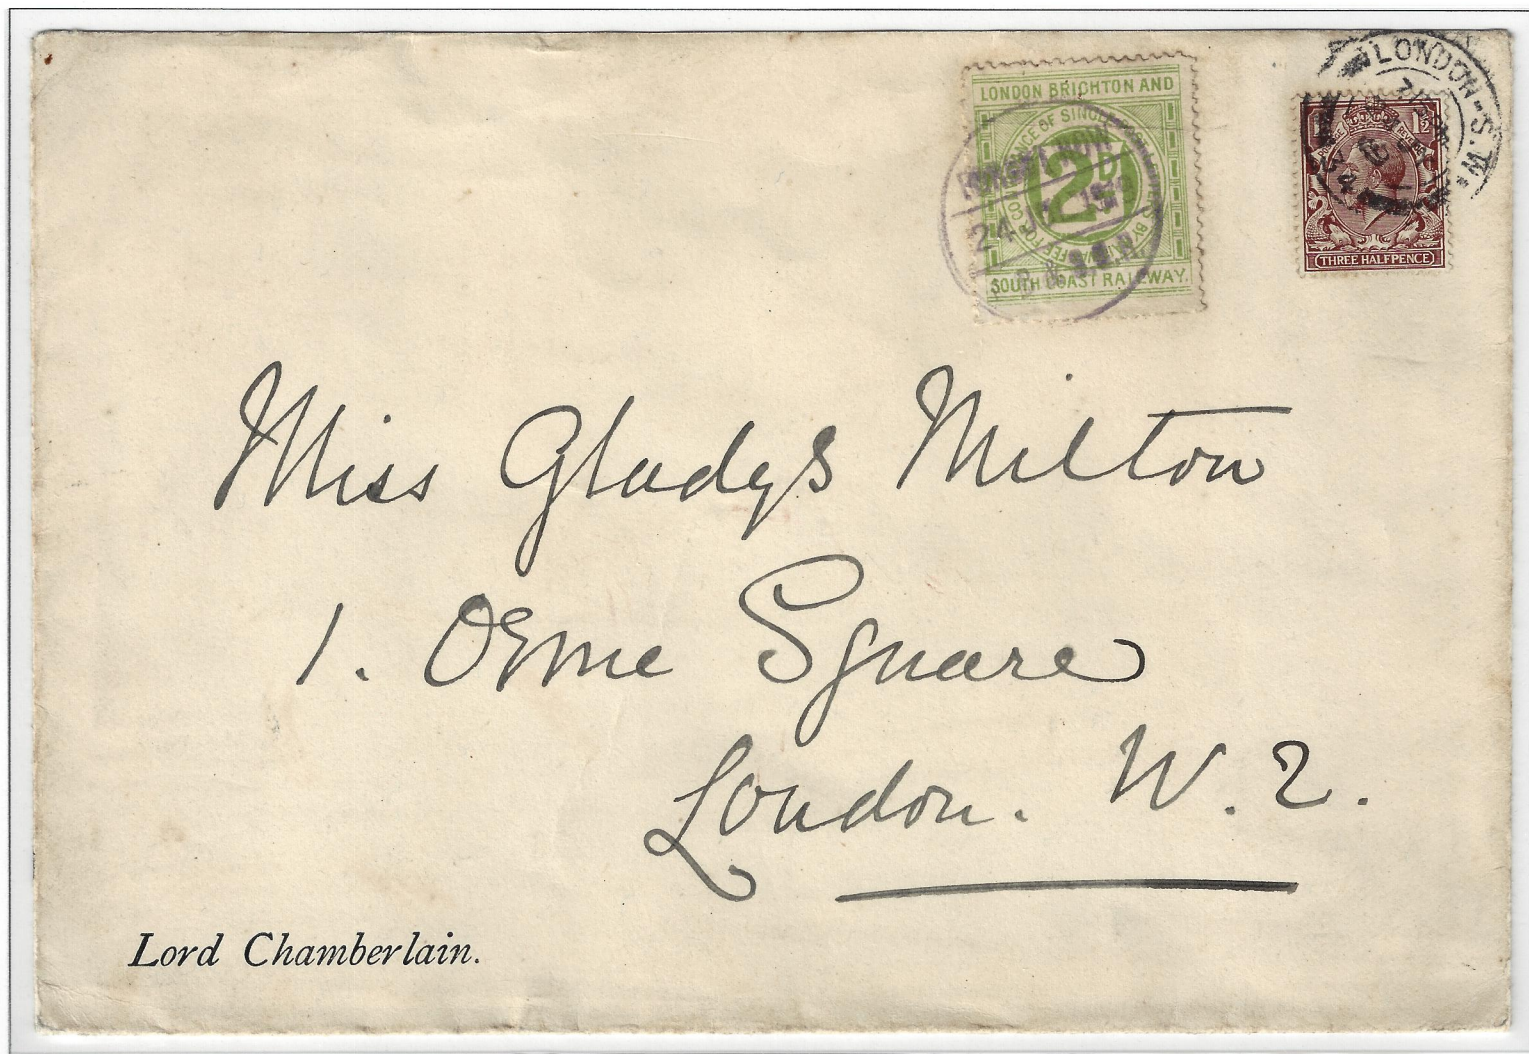 LONDON BRIGHTON AND
2D
SOUTH COAST RAILWAY.
24
LONDON-S.W.
1½
THREE HALFPENCE
Miss Gladys Milton
1. Orme Square
London. W. 2.
Lord Chamberlain.